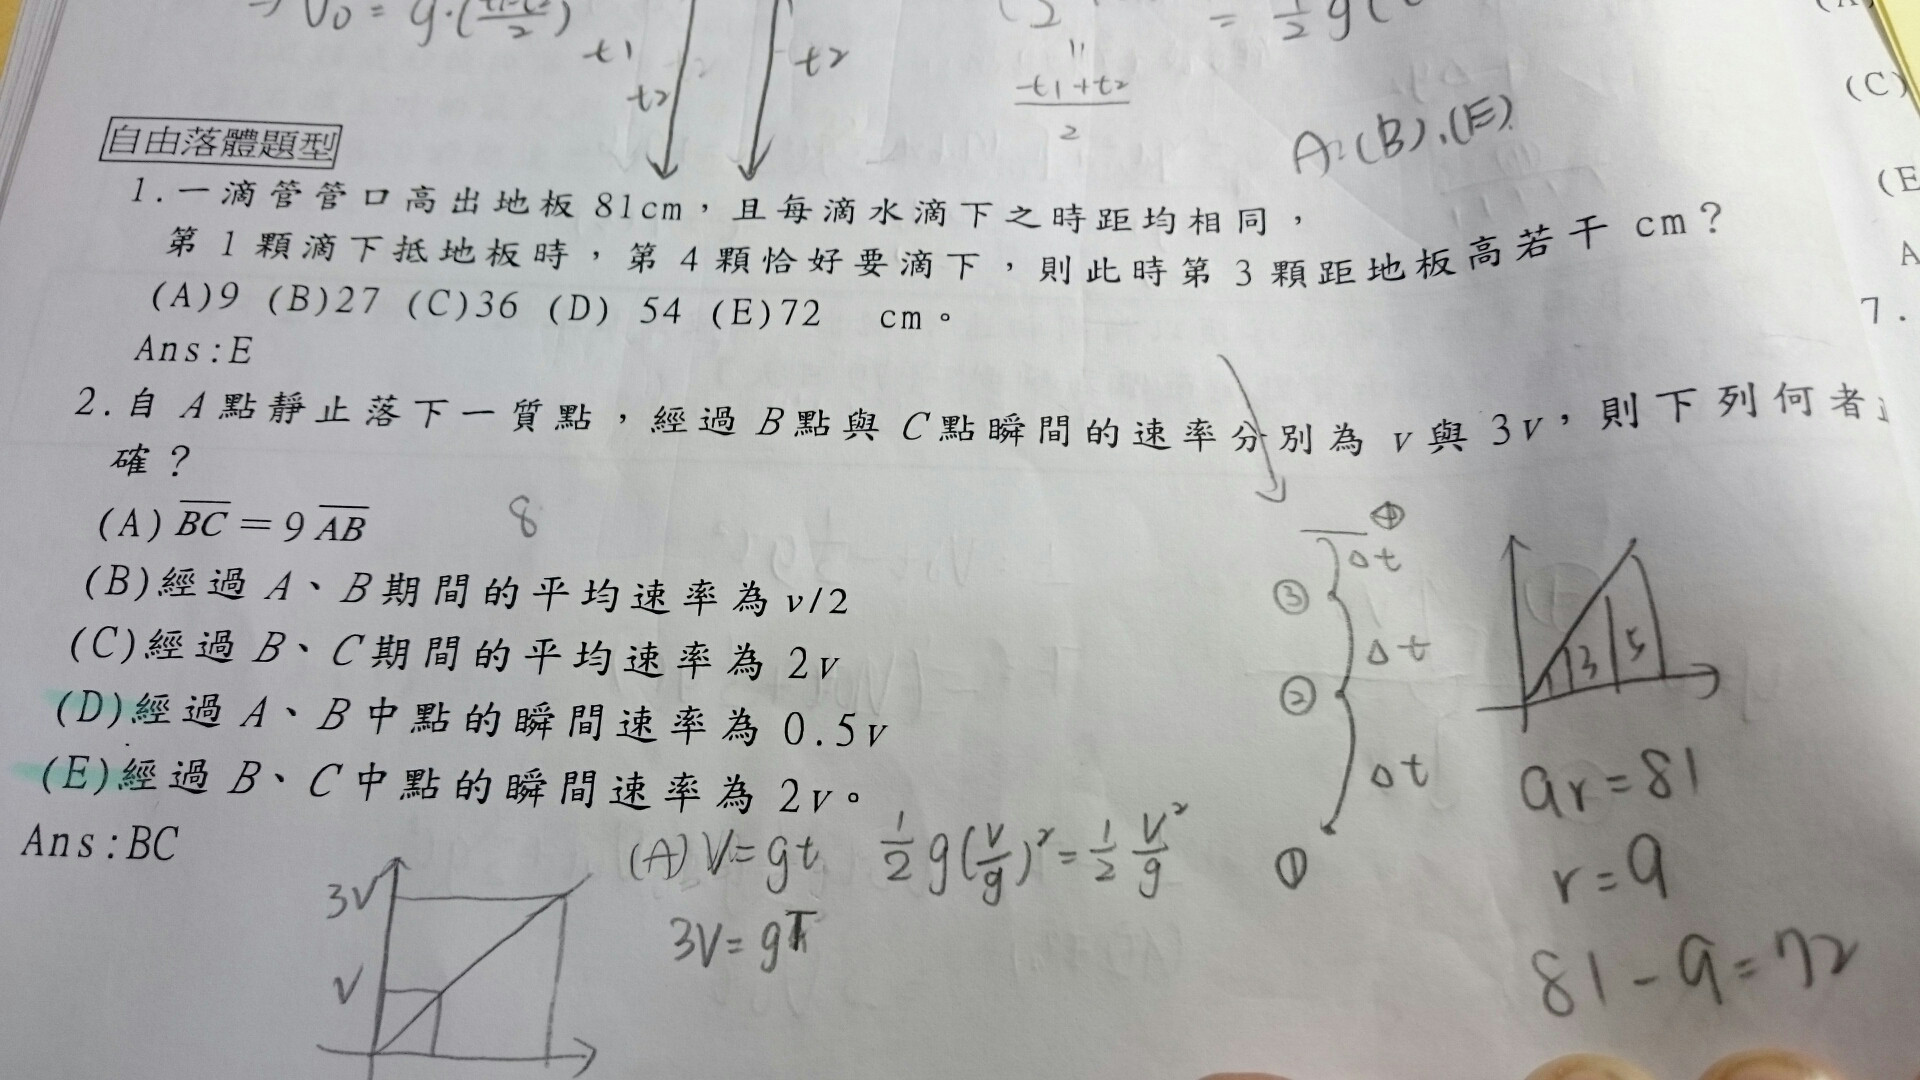 V₀ = g·(
t1
t2
t2
-t1+t2
2
= 1/2 g(
A:(B).(E)
(C)
(E
自由落體題型
1.一滴管管口高出地板81cm，且每滴水滴下之時距均相同，
第1顆滴下抵地板時，第4顆恰好要滴下，則此時第3顆距地板高若干cm？
(A)9 (B)27 (C)36 (D) 54 (E)72 cm。
Ans:E
2.自A點靜止落下一質點，經過B點與C點瞬間的速率分別為v與3v，則下列何者
確？
(A)BC＝9AB
8
(B)經過A、B期間的平均速率為v/2
(C)經過B、C期間的平均速率為2v
(D)經過A、B中點的瞬間速率為0.5v
(E)經過B、C中點的瞬間速率為2v。
Ans:BC
7.
④
Δt
③
Δt
②
Δt
①
1 3 5
9r=81
r=9
81-9=72
(A) V=gt 1/2 g(V/g)²=1/2 V²/g
3V=gT
3V
V